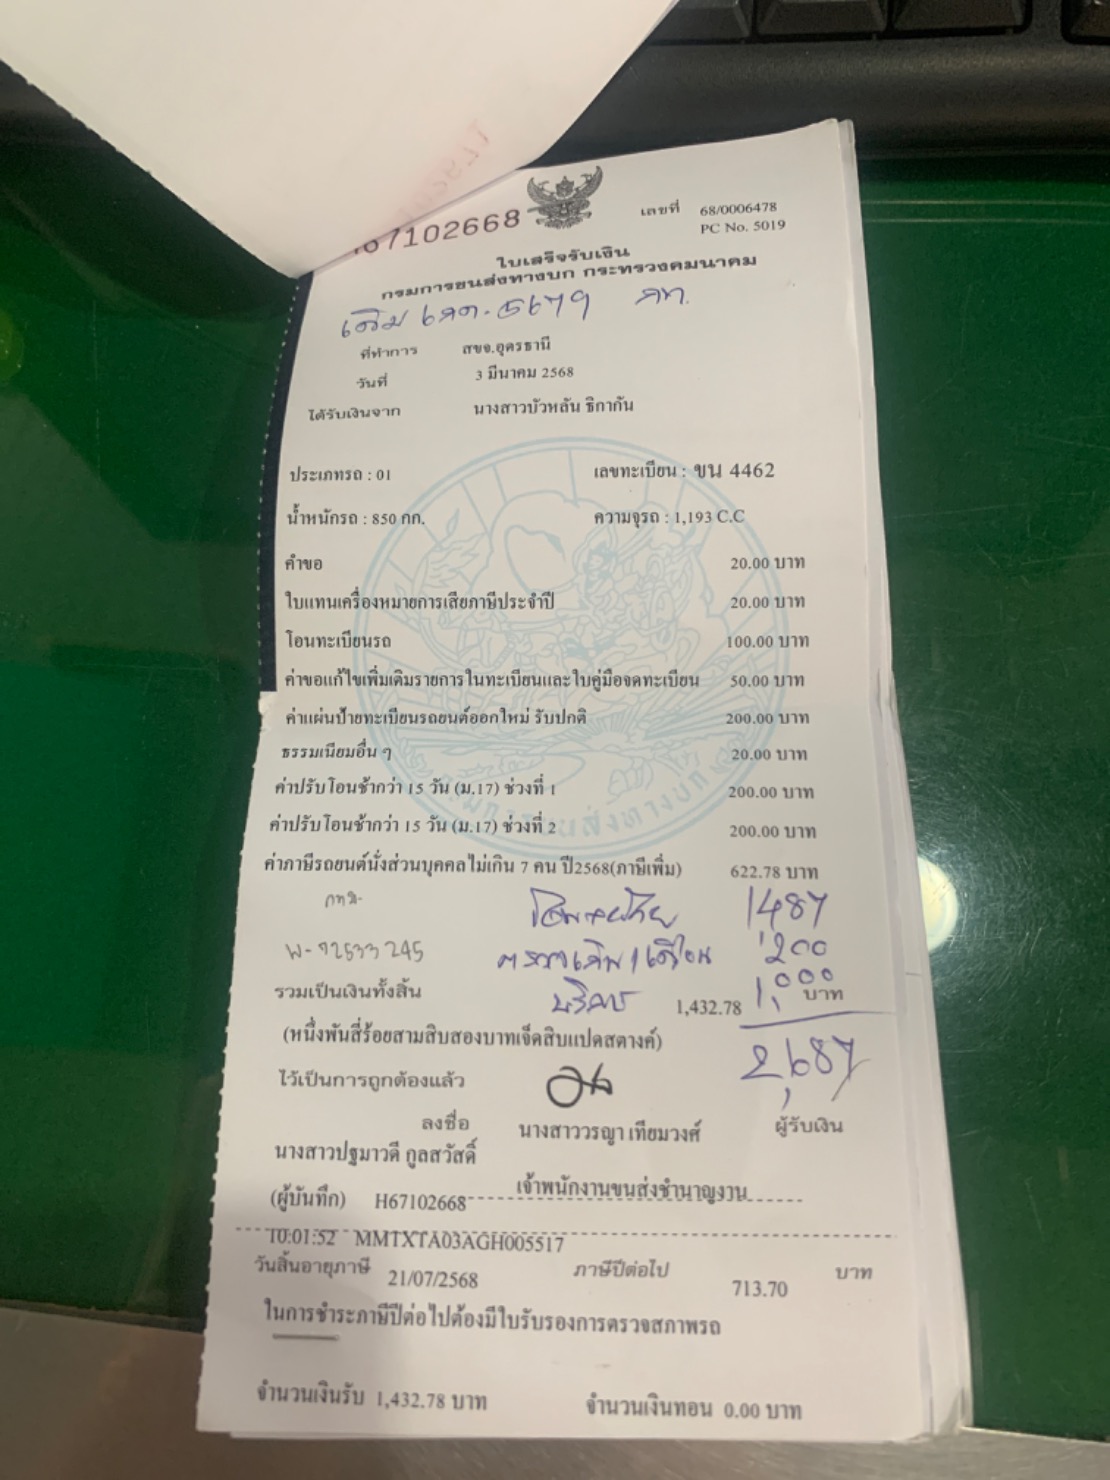 67102668
เลขที่ 68/0006478
PC No. 5019
ใบเสร็จรับเงิน
กรมการขนส่งทางบก กระทรวงคมนาคม
เดิม 5679 กท.
ที่ทำการ สขจ.อุดรธานี
วันที่ 3 มีนาคม 2568
ได้รับเงินจาก นางสาวบัวหลัน ธิกากัน
ประเภทรถ : 01 เลขทะเบียน : ขน 4462
น้ำหนักรถ : 850 กก. ความจุรถ : 1,193 C.C
คำขอ 20.00 บาท
ใบแทนเครื่องหมายการเสียภาษีประจำปี 20.00 บาท
โอนทะเบียนรถ 100.00 บาท
ค่าขอแก้ไขเพิ่มเติมรายการในทะเบียนและใบคู่มือจดทะเบียน 50.00 บาท
ค่าแผ่นป้ายทะเบียนรถยนต์ออกใหม่ รับปกติ 200.00 บาท
ธรรมเนียมอื่น ๆ 20.00 บาท
ค่าปรับโอนช้ากว่า 15 วัน (ม.17) ช่วงที่ 1 200.00 บาท
ค่าปรับโอนช้ากว่า 15 วัน (ม.17) ช่วงที่ 2 200.00 บาท
ค่าภาษีรถยนต์นั่งส่วนบุคคลไม่เกิน 7 คน ปี2568(ภาษีเพิ่ม) 622.78 บาท
1,487
W-92533245 200
รวมเป็นเงินทั้งสิ้น บริการ 1,432.78 1,000 บาท
(หนึ่งพันสี่ร้อยสามสิบสองบาทเจ็ดสิบแปดสตางค์) 2,687
ไว้เป็นการถูกต้องแล้ว
ลงชื่อ นางสาววรญา เทียมวงศ์ ผู้รับเงิน
นางสาวปฐมาวดี กูลสวัสดิ์
เจ้าพนักงานขนส่งชำนาญงาน
(ผู้บันทึก) H67102668
10:01:52 MMTXTA03AGH005517
วันสิ้นอายุภาษี 21/07/2568 ภาษีปีต่อไป 713.70 บาท
ในการชำระภาษีปีต่อไปต้องมีใบรับรองการตรวจสภาพรถ
จำนวนเงินรับ 1,432.78 บาท จำนวนเงินทอน 0.00 บาท